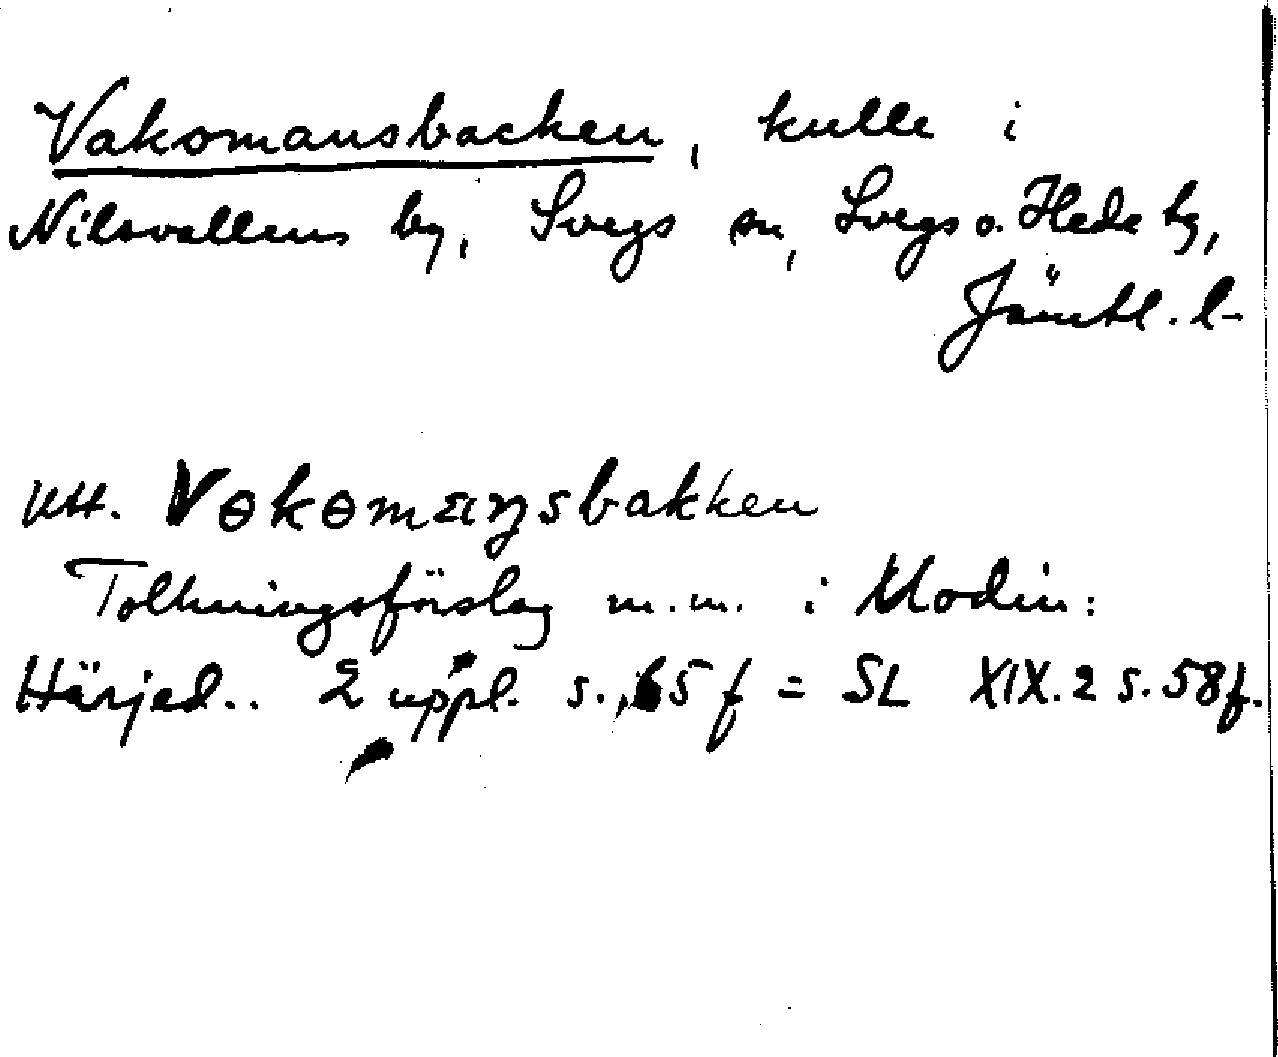 Vakomansbacken, kulle i
Nilsvallens by, Svegs sn, Svegs o. Hede tg,
Jämtl. l-
utt. Vɵkɵmaŋsbakken
Tolkningsförslag m.m. i Modin:
Härjed.. 2 uppl. s. 65 f = SL XIX.2 s. 58 f.